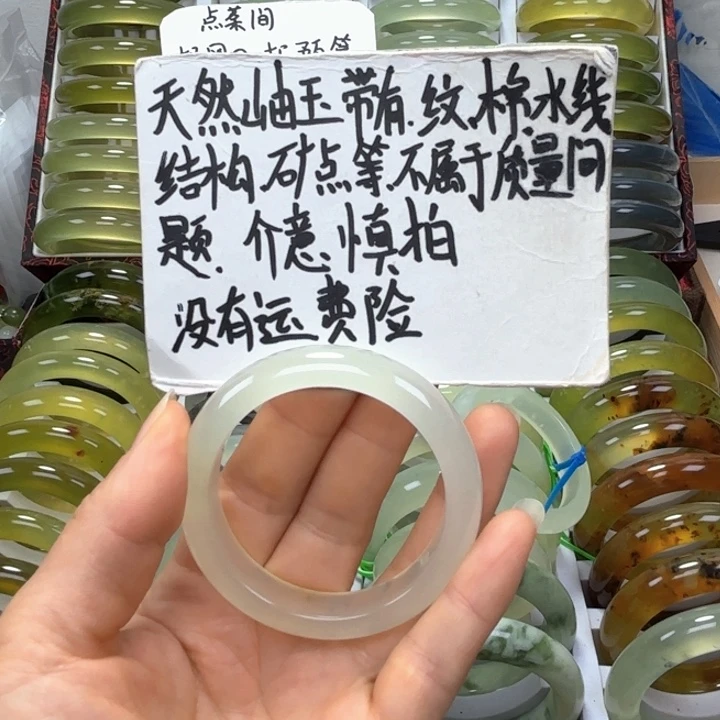 点菜间
天然岫玉带有.纹.棉.水线
结构.矿点等.不属于质量问
题.介意.慎拍
没有运费险